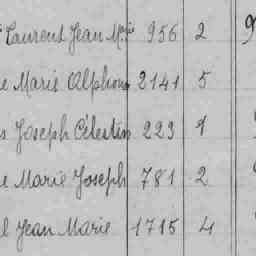 Laurent Jean Marie 956 2
Marie Alphons 2141 5
Joseph Célestin 223 1
e Marie Joseph 781 2
l Jean Marie 1715 4